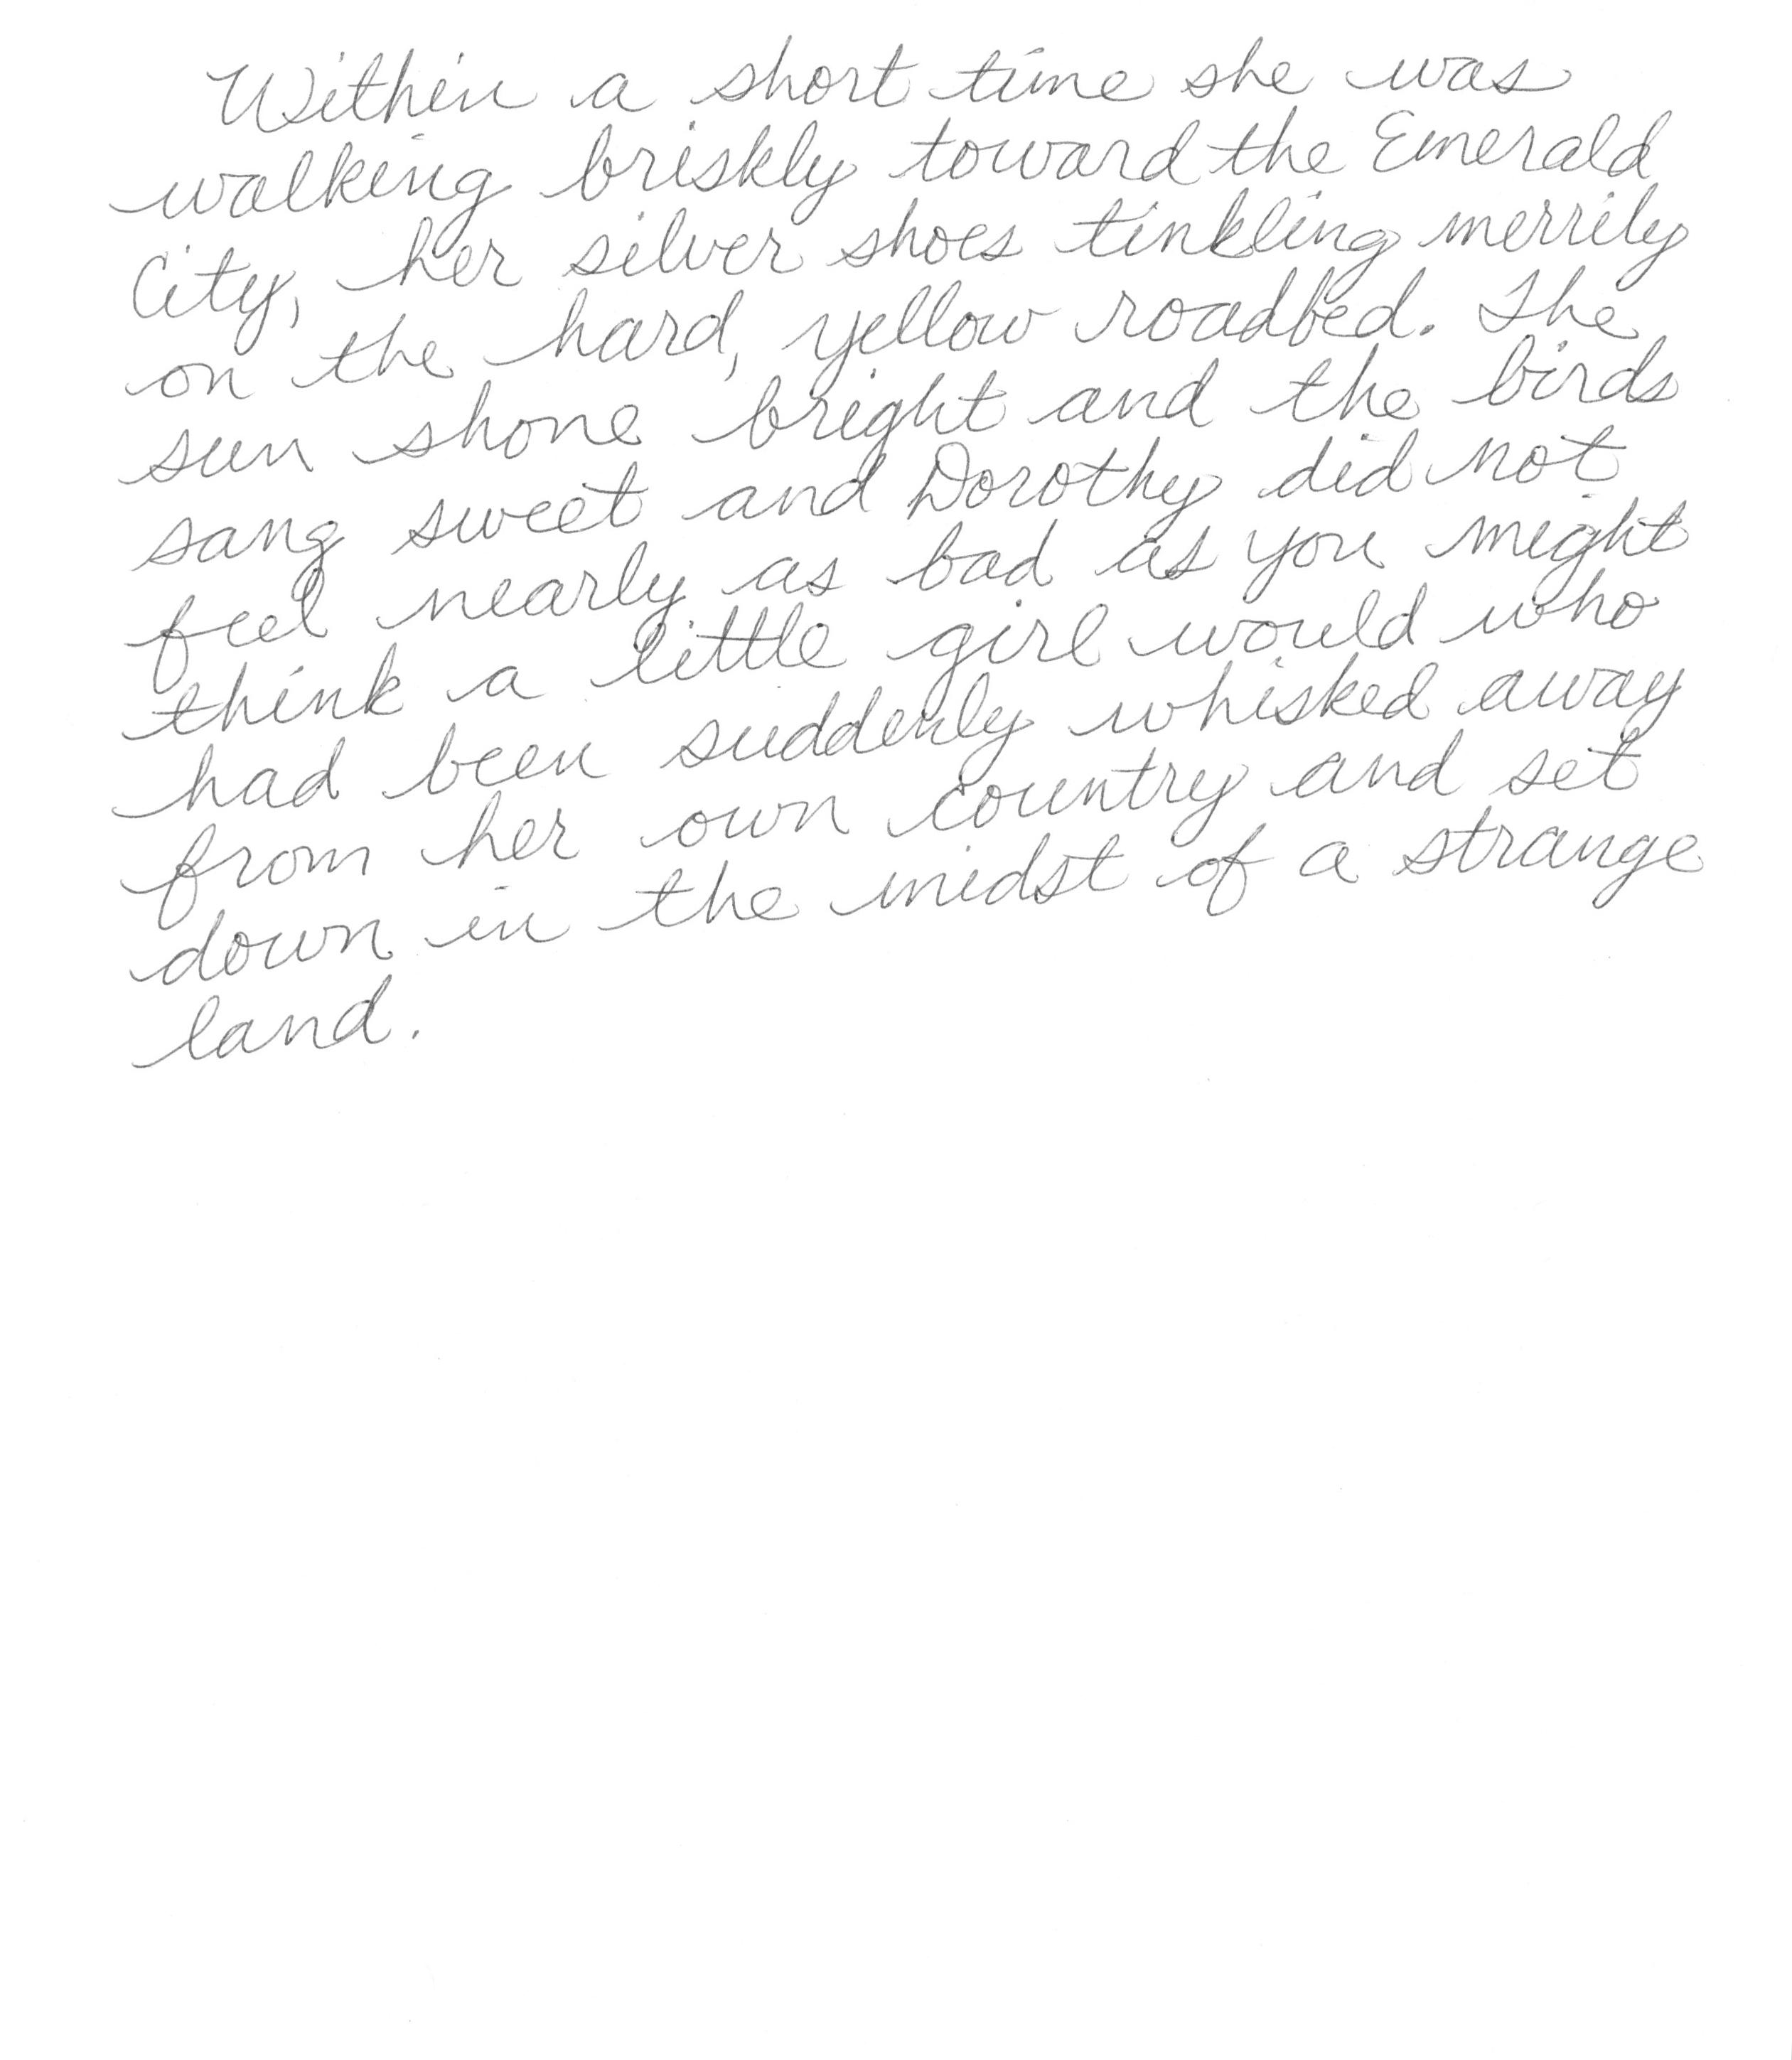 Within a short time she was
walking briskly toward the Emerald
City, her silver shoes tinkling merrily
on the hard, yellow roadbed. The
sun shone bright and the birds
sang sweet and Dorothy did not
feel nearly as bad as you might
think a little girl would who
had been suddenly whisked away
from her own country and set
down in the midst of a strange
land.